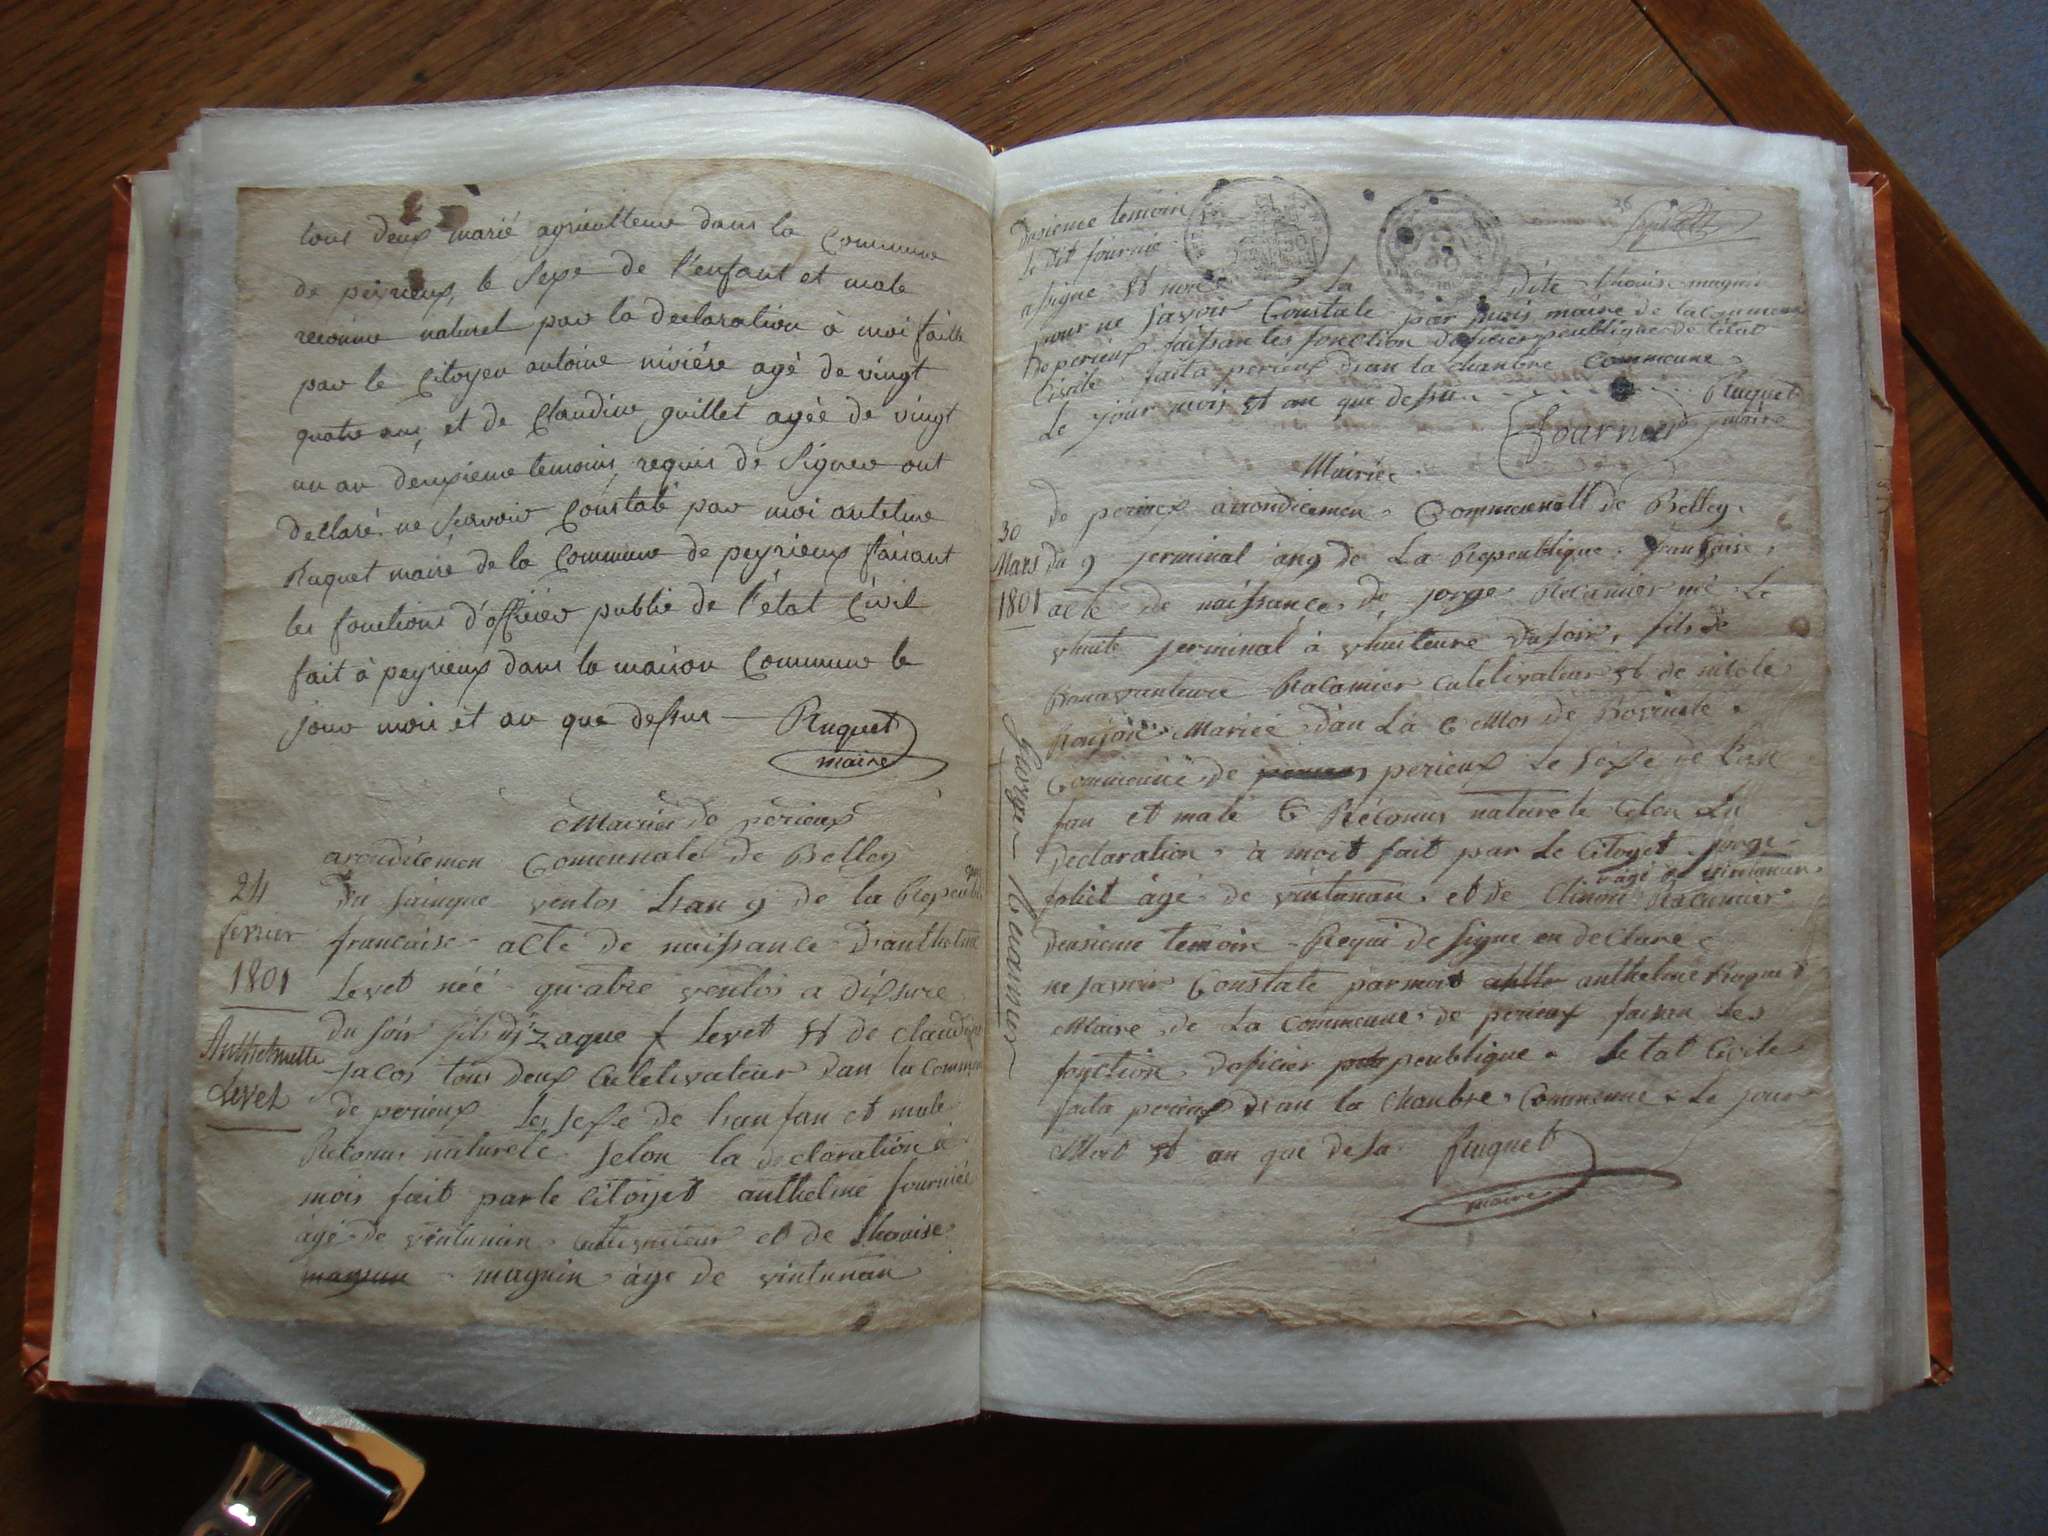 tous deux marié agriculteur dans la commune
de peyrieux, le sexe de l'enfant et male
reconnu naturel par la declaration à moi faitte
par le Citoyen antoine nivière agé de vingt
quatre ans, et de Claudine guillet agée de vingt
un an deuxieme temoins, requis de Signer ont
declaré ne Scavoir Constaté par moi antelme
Ruquet maire de la Commune de peyrieux faisant
les fonctions d'officier public de l'état Civil
fait à peyrieux dans la maison Commune le
jour mois et an que dessus Ruquet
maire
Mairiee de perieux
arondicemen Comennale de Belley
24 fevrier 1801
Du sainque ventos lan 9 de la Repeublique
francaise acte de naissance dantheleme
Anthelmette Levet
Levet néé quatre ventos a dixsure
du soir fils dj zaque f Levet et de claudine
jacos tous deux Culetivateur dan la commune
de perieux Les sexe de lanfan et male
Reconus naturele selon la declaration a
mois fait par le Citoyet anthelme fournié
agé de vintunan et de
magnin age de vintunan
Dusieme temoin
le dit fournié
a signe et non la dite magnin
pour ne savoir Constate par mois maire de la commune
De perieux faissan les fonction daficier peublique de letat
Civile fait a perieux dian la chanbre Commeune
Le jour mois et an que desu Ruquet
fournier maire
Mairiee
de perieux arrondicemen Commeunall de Belley
30 Mars 1801
du 9 jerminal an 9 de La Repeublique franssaise
acte de naissance de jorge Récamier né Le
vhuite jerminal à vhuiteure du soir, fils de
Bonavanteure Racamier culetivateur et de nicole
Mariee dan La
Commeune de perieux Le sexe de lan
fan et male Réconus naturele selon La
Declaration a moit fait par Le Citoyet jorge
joliet âgé de vintunan et de Racamier
agé de vintunan
Deusieme temoin Requi de signe on declare
ne savoir Constate par moit anthelme Ruquet
Maire de La commeune de perieux faisan Les
fonction daficier peublique Letat Civile
faita perieux dian la chanbre Commeune Le jour
Moit et an que desu Ruquet
maire
George Récamier